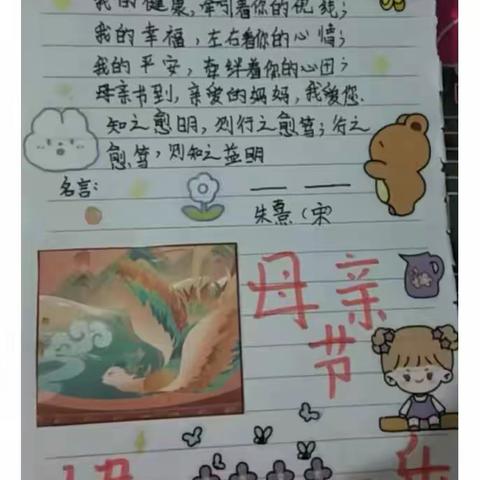 我的健康,牵引着你的视线;
我的幸福,左右着你的心情;
我的平安,牵绊着你的心田;
母亲节到,亲爱的妈妈,我爱您.
知之愈明,则行之愈笃;行之
愈笃,则知之益明
名言:
—— ——
朱熹(宋
母亲
节
快 乐